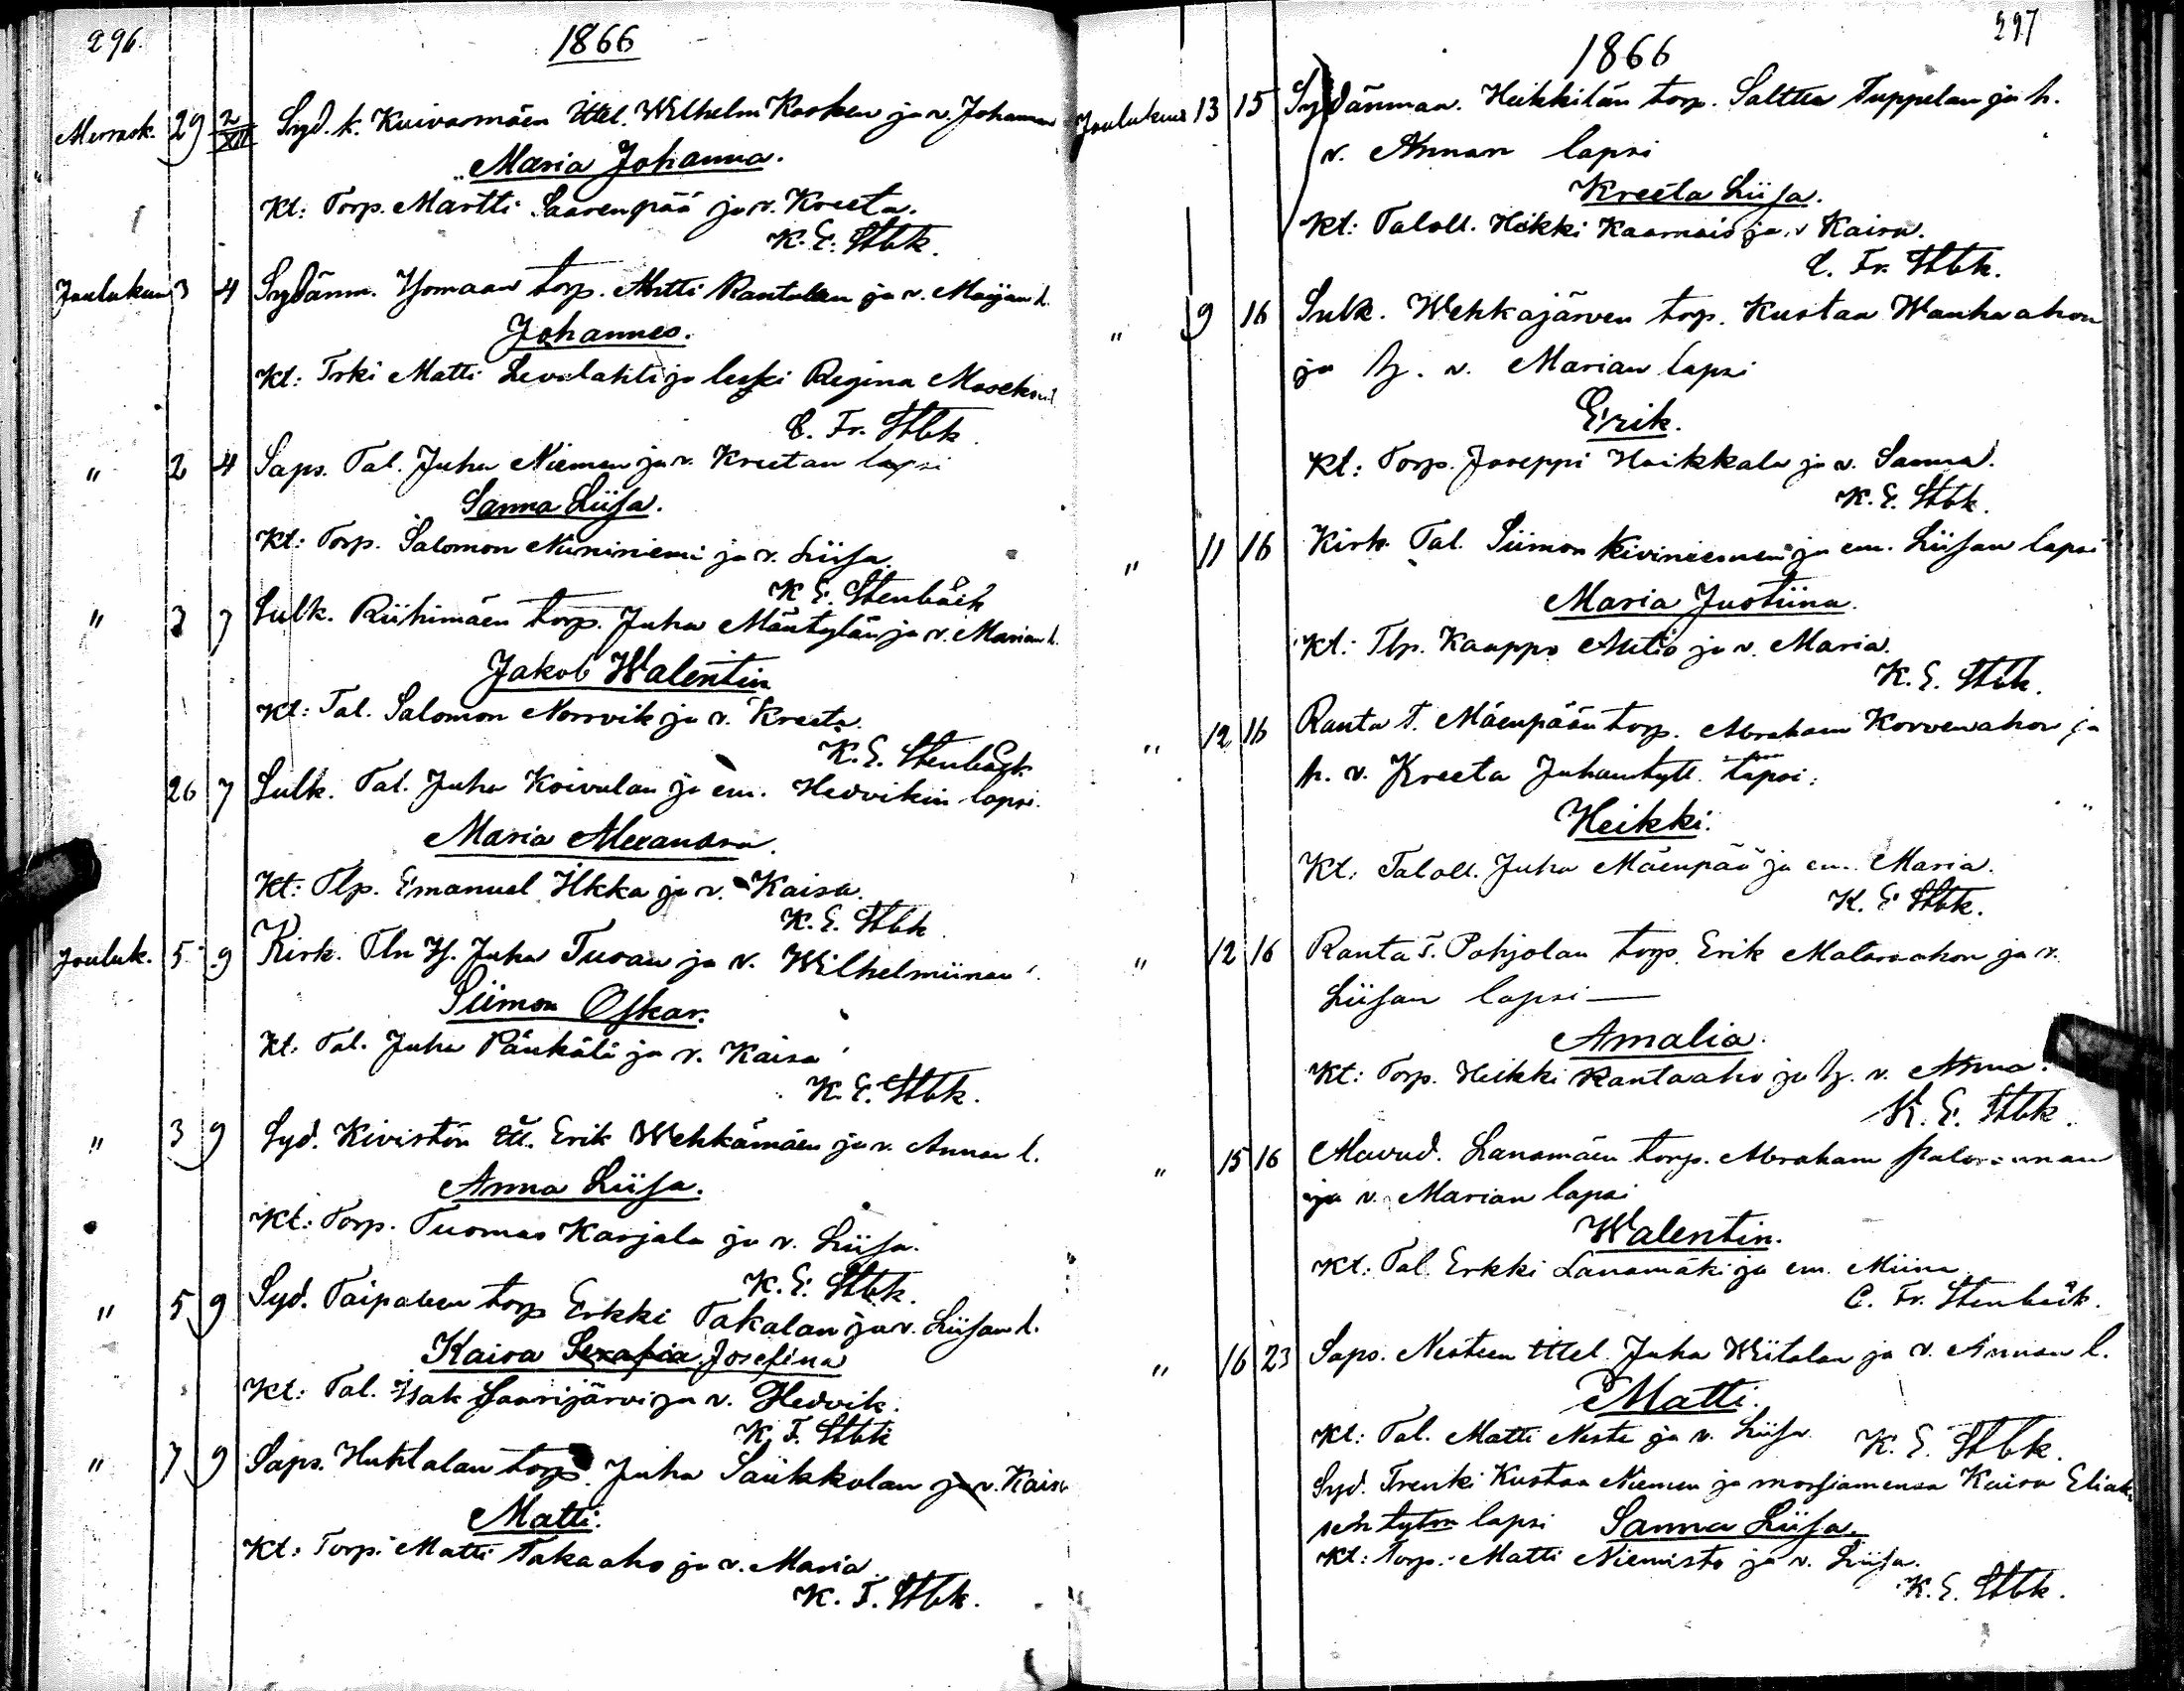 296.
1866
Marrask. 29 2/XII Syd. k. Kuivasmäen ittel. Wilhelm Kosken ja v. Johannan
Maria Johanna.
Kt: Torp. Martti Saarenpää ja v. Kreeta.
K. E. Stbk.
Joulukuu 3 4 Sydänm. Isomaan torp. Matti Rantalan ja v. Maijan l.
Johannes.
Kt: Trki Matti Levälahti ja leski Regina
C. Fr. Stbk.
" 2 4 Saps. Tal. Juha Niemen ja v. Kreetan lapsi
Sanna Liisa.
Kt: Torp. Salomon Niininiemi ja v. Liisa.
K E. Stenbäck
" 3 7 Sulk. Riihimäen torp. Juha Mäntylän ja v. Marian l.
Jakob Walentin
Kt: Tal. Salomon Norrvik ja v. Kreeta.
K. E. Stenbäck
26 7 Sulk. Tal. Juha Koivulan ja em. Hedvikin lapsi.
Maria Alexandra.
Kt: Tlp. Emanuel Ilkka ja v. Kaisa.
K. E. Stbk.
Jouluk. 5 9 Kirk. Tln H. Juha Tusan ja v. Wilhelmiinan l.
Siimon Oskar.
Kt: Tal. Juha Pänkälä ja v. Kaisa
K. E. Stbk.
" 3 9 Syd. Kivistön ttl. Erik Wehkämäen ja v. Annan l.
Anna Liisa.
Kt: Torp. Tuomas Karjala ja v. Liisa.
K. E. Stbk.
" 5 9 Syd. Taipaleen torp Erkki Takalan ja v. Liisan l.
Kaisa Serafia Josefina
Kt: Tal. Isak Saarijärvi ja v. Hedvik.
K. F. Stbk
" 7 9 Saps. Huhtalan torp. Juha Saukkolan ja v. Kaisa
Matti.
Kt: Torp. Matti Takaaho ja v. Maria.
K. F. Stbk.
297
1866
Joulukuu 13 15 Sydänmaa. Heikkilän torp. Salttu Tuppelan ja h.
v. Annan lapsi
Kreeta Liisa.
Kt: Taloll. Heikki Kaarnais ja v Kaisa.
C. Fr. Stbk.
" 9 16 Sulk. Wehkajärven torp. Kustaa Wanhaahon
ja h. v. Marian lapsi
Erik.
Kt: Torp. Joseppi Haikkala ja v. Sanna.
K. E. Stbk.
" 11 16 Kirk. Tal. Siimon Kiviniemen ja em. Liisan lapsi
Maria Justiina.
Kt: Tlp. Kauppo Autio ja v. Maria.
K. E. Stbk.
" 12 16 Ranta t. Mäenpään torp. Abraham Korvenahon ja
h. v. Kreeta Juhantytt. lapsi:
Heikki.
Kt: Taloll. Juha Mäenpää ja em. Maria.
K. E Stbk.
" 12 16 Ranta t. Pohjolan torp. Erik Mataraahon ja v.
Liisan lapsi —
Amalia.
Kt: Torp. Heikki Rantaaho ja h. v. Anna.
K. E. Stbk.
" 15 16 Mavud. Lanamäen torp. Abraham
ja v. Marian lapsi
Walentin.
Kt: Tal. Erkki Lanamäki ja em. Miina
C. Fr. Stenbäck.
" 16 23 Saps. Nesteen ittel. Juha Wiitalan ja v. Annan l.
Matti.
Kt: Tal. Matti Neste ja v. Liisa. K. E. Stbk.
Syd. Trenki Kustaa Niemen ja morsiamensa Kaisa Eliak
sen tytön lapsi Sanna Liisa.
Kt: Torp. Matti Niemistö ja v. Liisa.
K. E. Stbk.